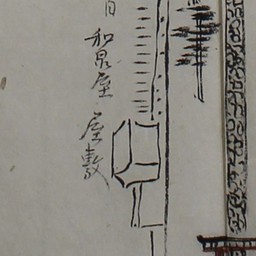 和泉屋屋敷